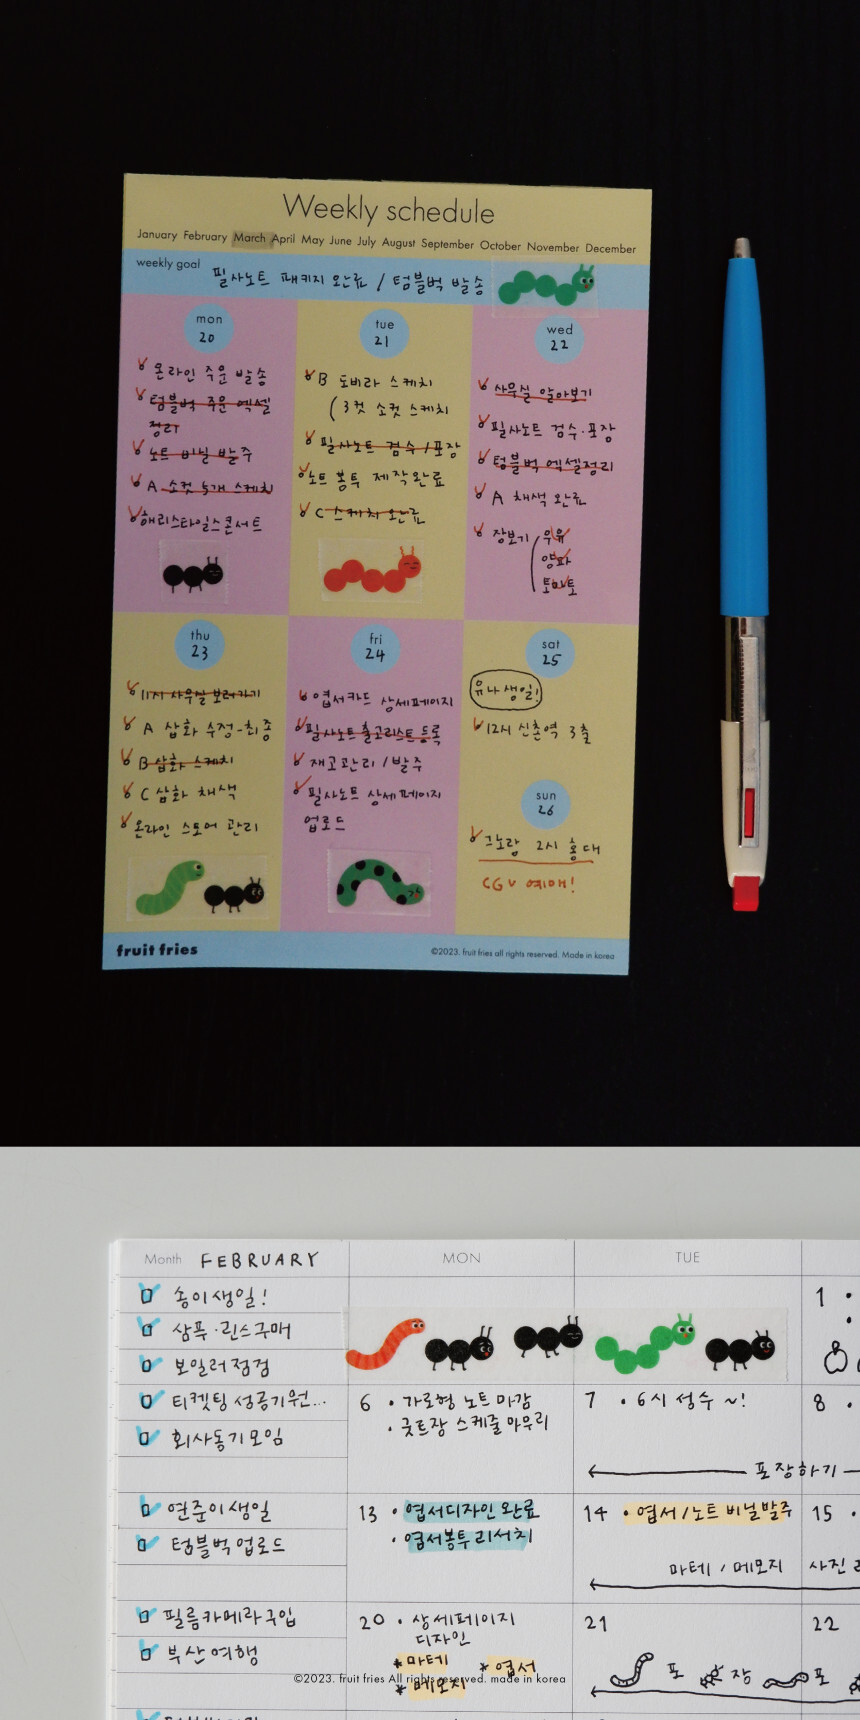 Weekly schedule
January February March April May June July August September October November December
weekly goal 필사노트 패키지 완료 / 텀블벅 발송
mon
20
온라인 주문 발송
텀블벅 주문 엑셀
정리
노트 비닐 발주
A 소컷 5개 스케치
해리스타일스콘서트
tue
21
B 도비라 스케치
(3컷 소컷 스케치
필사노트 검수 / 포장
노트 봉투 제작완료
C 스케치 완료
wed
22
사무실 알아보기
필사노트 검수·포장
텀블벅 엑셀정리
A 채색 완료
장보기 우유
양파
토마토
thu
23
11시 사무실 보러가기
A 삽화 수정-최종
B 삽화 스케치
C 삽화 채색
온라인 스토어 관리
fri
24
엽서카드 상세페이지
필사노트 출고리스트 등록
재고관리 / 발주
필사노트 상세페이지
업로드
sat
25
유나 생일!
12시 신촌역 3출
sun
26
그노랑 2시 홍대
CGV 예매!
fruit fries
©2023. fruit fries all rights reserved. Made in korea
Month FEBRUARY MON TUE
송이생일!
샴푸·린스구매
보일러점검
티켓팅 성공기원...
회사동기모임
연준이생일
텀블벅업로드
필름카메라구입
부산여행
1
6 · 가로형 노트 마감
· 굿트장 스케줄 마무리
7 · 6시 성수 ~!
8
포장하기
13 · 엽서디자인 완료
· 엽서봉투리서치
14 · 엽서/노트 비닐발주
15
마테 / 메모지
사진
20 · 상세페이지
디자인
*마테 *엽서
*메모지
21
22
포 장 포
©2023. fruit fries All rights reserved. made in korea